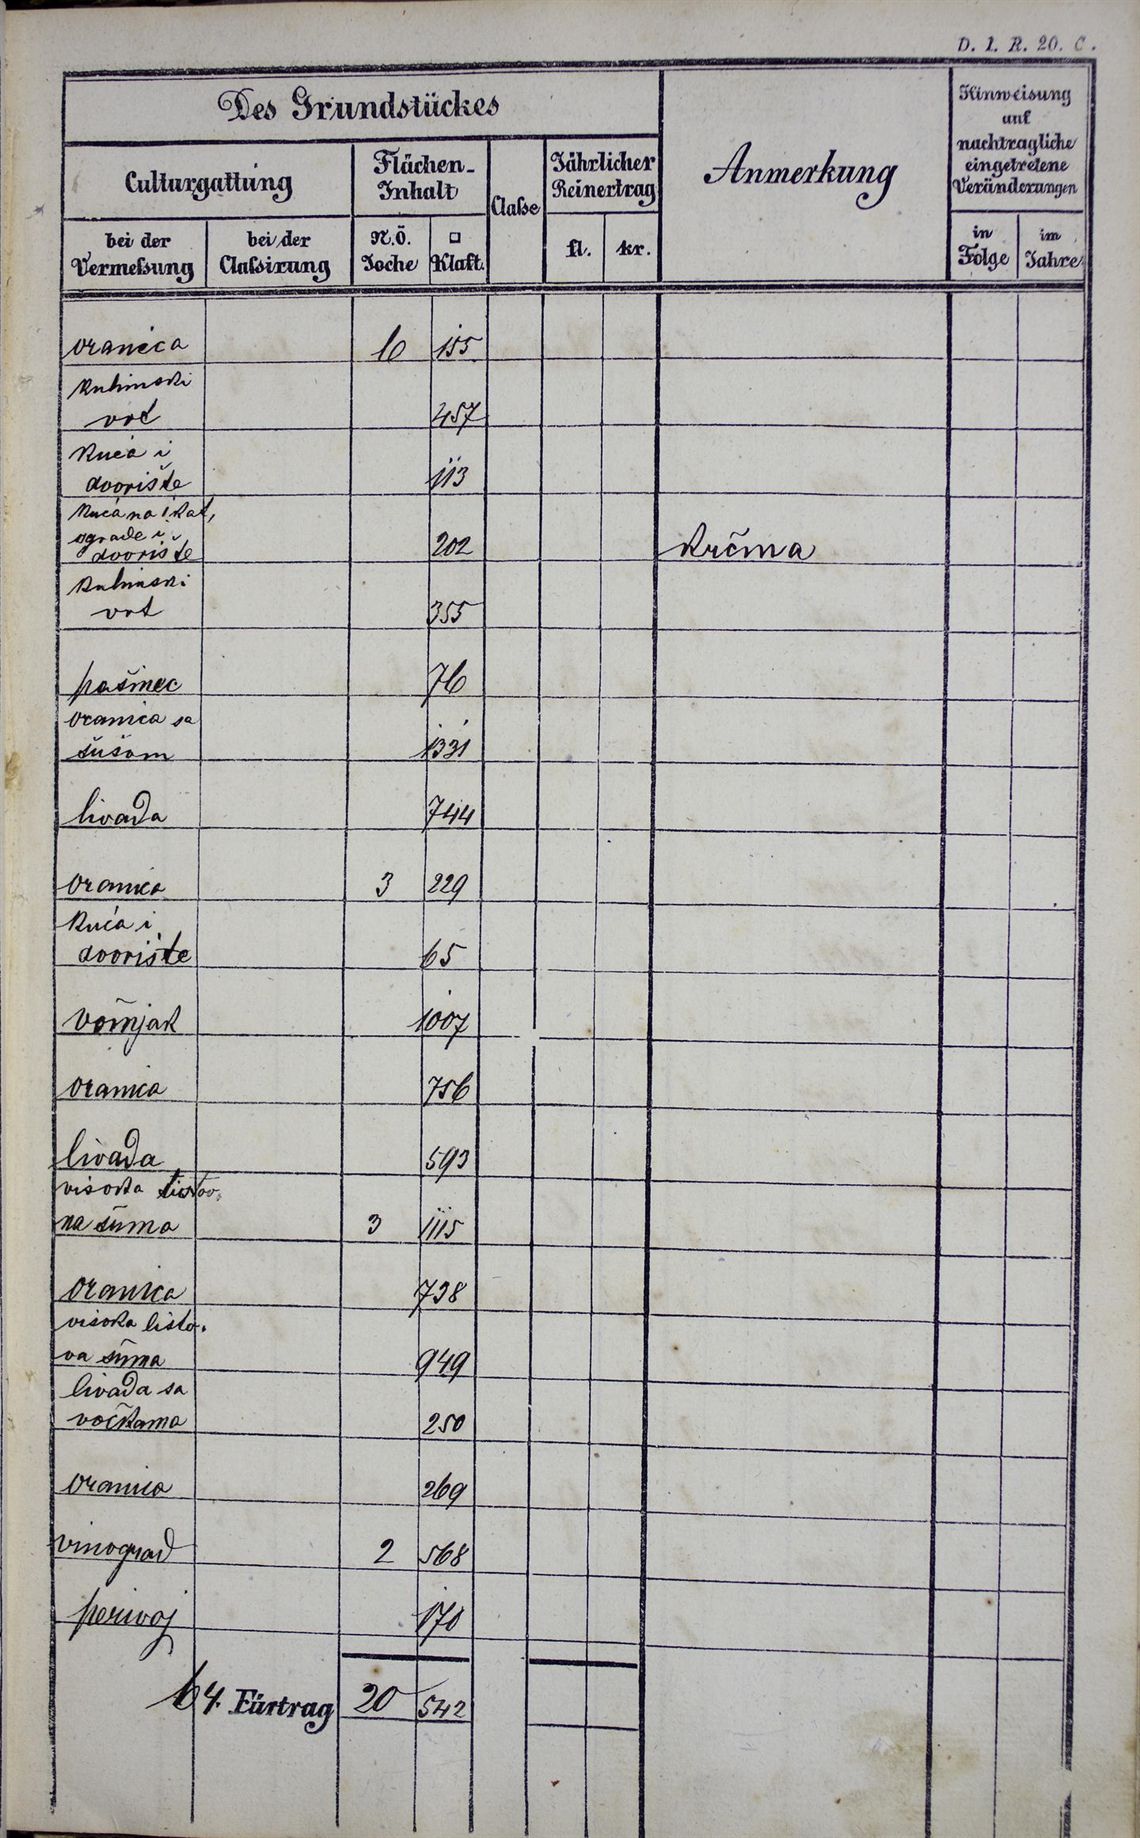 D. 1. R. 20. C.
Des Grundstückes
Anmerkung
Hinweisung
auf
nachtragliche
eingetretene
Veränderungen
Culturgattung
Flächen-
Inhalt
Claße
Jährlicher
Reinertrag
bei der
Vermeßung
bei der
Claßirung
N.Ö.
Joche
□
Klaft.
fl.
kr.
in
Folge
im
Jahre
oranica 6 155
Kuhinski
vrt 457
Kuća i
dvorište 113
Kuća na 1 kat,
ograde i
dvorište 202 Krčma
Kuhinski
vrt 355
pašinec 76
oranica sa
šušom 1331
livada 744
oranica 3 229
Kuća i
dvorište 65
voćnjak 1007
oranica 756
livada 593
visoka listov.
na šuma 3 1115
oranica 738
visoka listo.
va šuma 949
livada sa
voćkama 250
oranica 269
vinograd 2 568
perivoj 170
64. Fürtrag 20 542